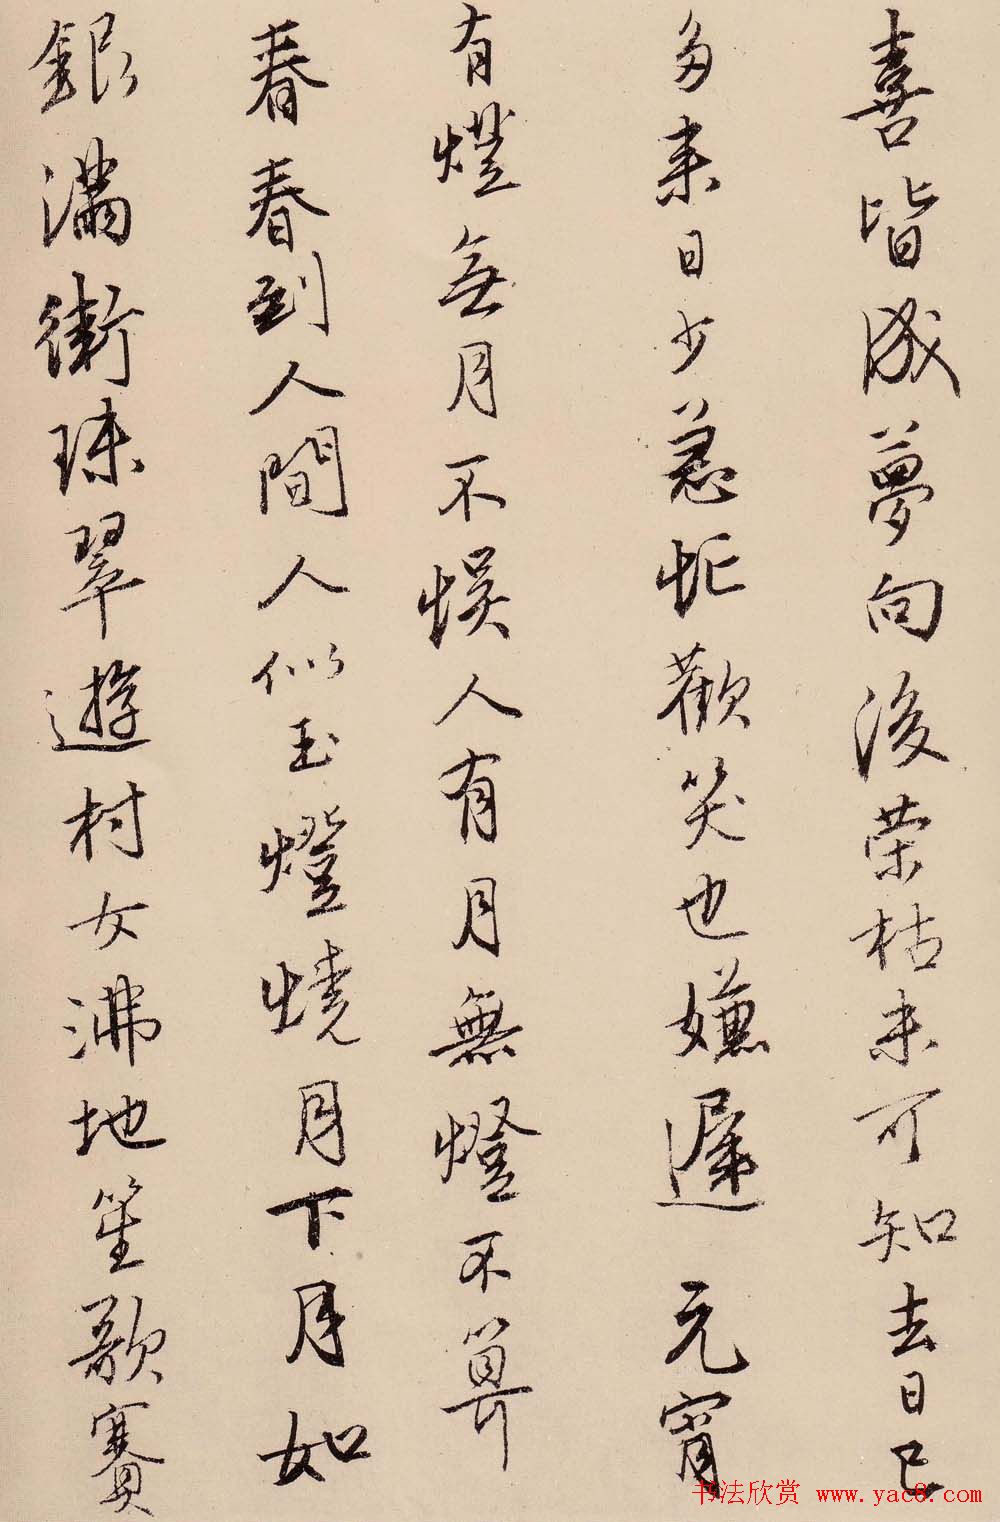 喜皆成夢向後荣枯未可知去日已
多来日少急忙歡笑也嫌遲 元宵
有燈無月不悮人有月無燈不算
春春到人間人似玉燈燒月下月如
銀滿街珠翠遊村女沸地笙歌賽
书法欣赏 www.yac8.com